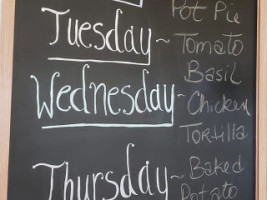 Pot Pie
Tuesday ~ Tomato
Basil
Wednesday ~ Chicken
Tortilla
Thursday ~ Baked
Potato